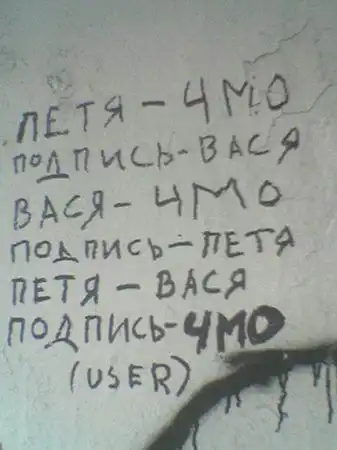 ПЕТЯ - ЧМО
ПОДПИСЬ - ВАСЯ
ВАСЯ - ЧМО
ПОДПИСЬ - ПЕТЯ
ПЕТЯ - ВАСЯ
ПОДПИСЬ - ЧМО
(USER)